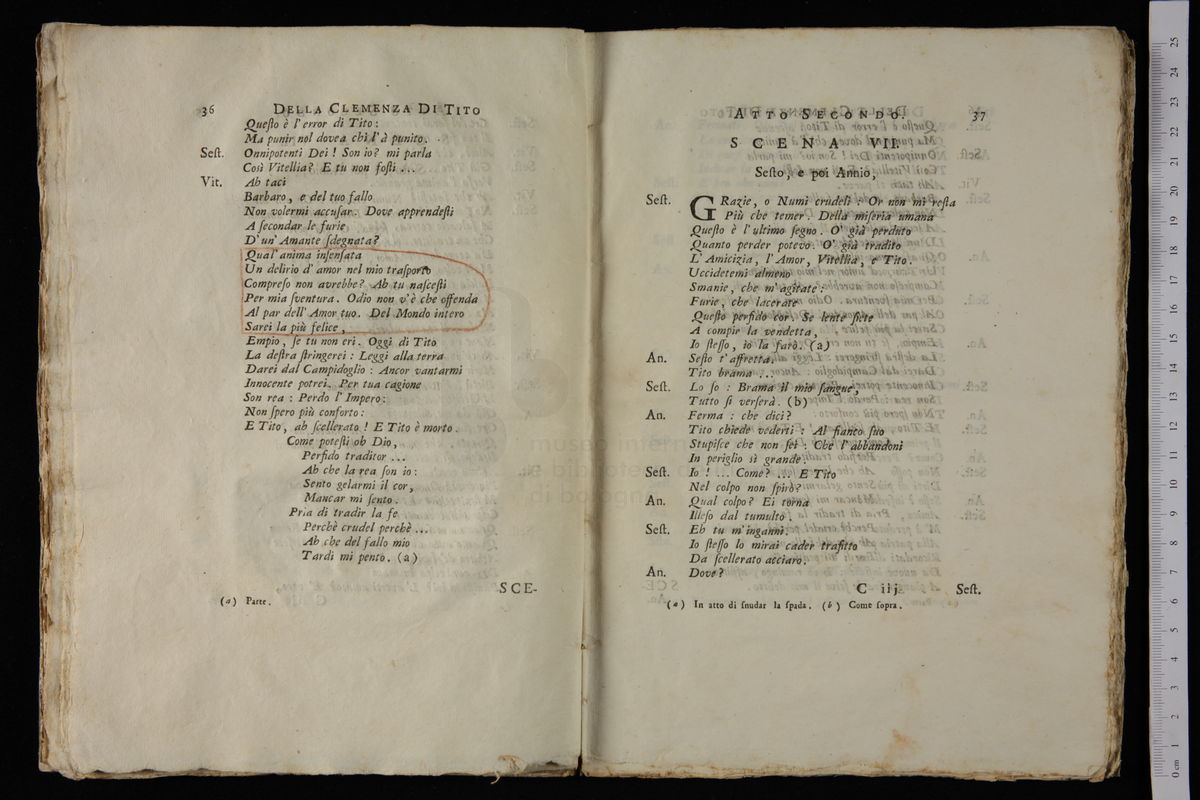 36 DELLA CLEMENZA DI TITO
Queſto è l' error di Tito :
Ma punir nol dovea chi l' à punito.
Seſt. Onnipotenti Dei ! Son io? mi parla
Così Vitellia? E tu non foſti ...
Vit. Ah taci
Barbaro, e del tuo fallo
Non volermi accuſar. Dove apprendeſti
A ſecondar le furie
D' un' Amante ſdegnata?
Qual' anima inſenſata
Un delirio d' amor nel mio traſporto
Compreſo non avrebbe? Ah tu naſceſti
Per mia ſventura. Odio non v' è che offenda
Al par dell' Amor tuo. Del Mondo intero
Sarei la più felice,
Empio, ſe tu non eri. Oggi di Tito
La deſtra ſtringerei : Leggi alla terra
Darei dal Campidoglio : Ancor vantarmi
Innocente potrei. Per tua cagione
Son rea : Perdo l' Impero :
Non ſpero più conforto :
E Tito, ah ſcellerato ! E Tito è morto.
Come poteſti oh Dio,
Perfido traditor ...
Ah che la rea ſon io :
Sento gelarmi il cor,
Mancar mi ſento.
Pria di tradir la fe
Perchè crudel perchè ...
Ah che del fallo mio
Tardi mi pento. (a)
SCE-
(a) Parte.
ATTO SECONDO. 37
SCENA VII.
Seſto, e poi Annio,
Seſt. GRazie, o Numi crudeli : Or non mi reſta
Più che temer. Della miſeria umana
Queſto è l' ultimo ſegno. O' già perduto
Quanto perder potevo. O' già tradito
L' Amicizia, l' Amor, Vitellia, e Tito.
Uccidetemi almeno
Smanie, che m' agitate :
Furie, che lacerate
Queſto perfido cor. Se lente ſiete
A compir la vendetta,
Io ſteſſo, io la farò. (a)
An. Seſto t' affretta.
Tito brama ...
Seſt. Lo ſo : Brama il mio ſangue,
Tutto ſi verſerà. (b)
An. Ferma : che dici?
Tito chiede vederti : Al fianco ſuo
Stupiſce che non ſei : Che l' abbandoni
In periglio sì grande.
Seſt. Io ! ... Come? ... E Tito
Nel colpo non ſpirò?
An. Qual colpo? Ei torna
Illeſo dal tumulto.
Seſt. Eh tu m' inganni.
Io ſteſſo lo mirai cader trafitto
Da ſcellerato acciaro.
An. Dove?
C iij Seſt.
(a) In atto di ſnudar la ſpada. (b) Come ſopra.